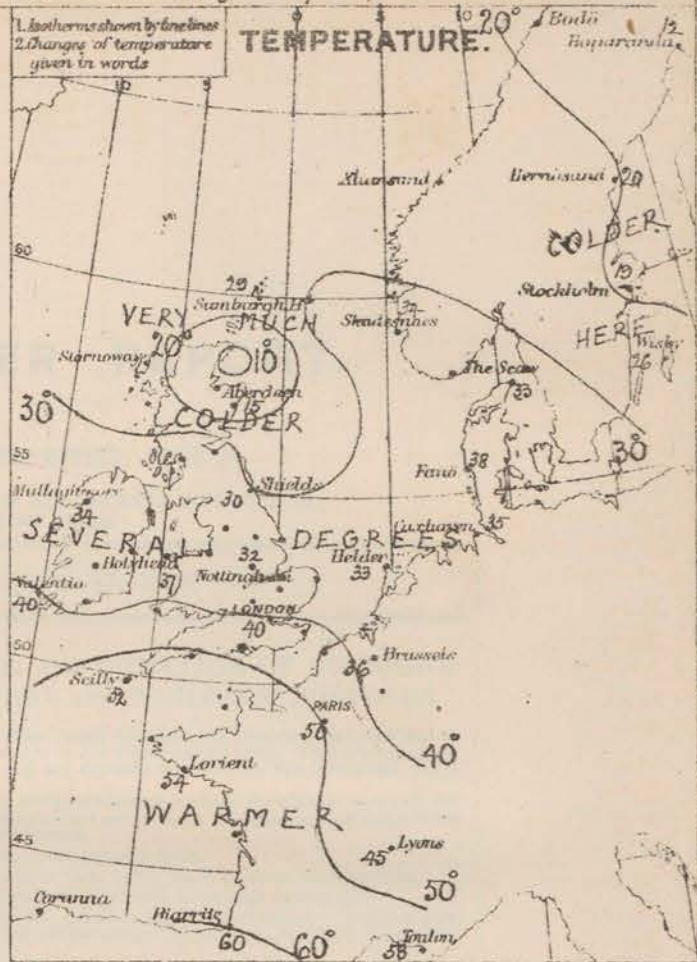 1. Isotherms shown by fine lines
2. Changes of temperature
given in words
TEMPERATURE.
10
5
0
5
10
20°
Bodö
Haparanda
12
Xtiansund
Hernösand
20
COLDER
60
19
Stockholm
29
Sumburgh H.
VERY
MUCH
Skudesnaes
HERE
Wisby
26
20°
Stornoway
10°
The Scaw
33
Aberdeen
15
30°
COLDER
30°
55
Shields
Fanö
38
Mullaghmore
34
30
SEVERAL
DEGREES
Cuxhaven
35
Holyhead
37
32
Nottingham
Helder
33
Valentia
40
LONDON
40
50
Brussels
36
Scilly
52
PARIS
56
40°
Lorient
54
WARMER
45
Lyons
45
50°
Corunna
Biarritz
60
60°
Toulon
58